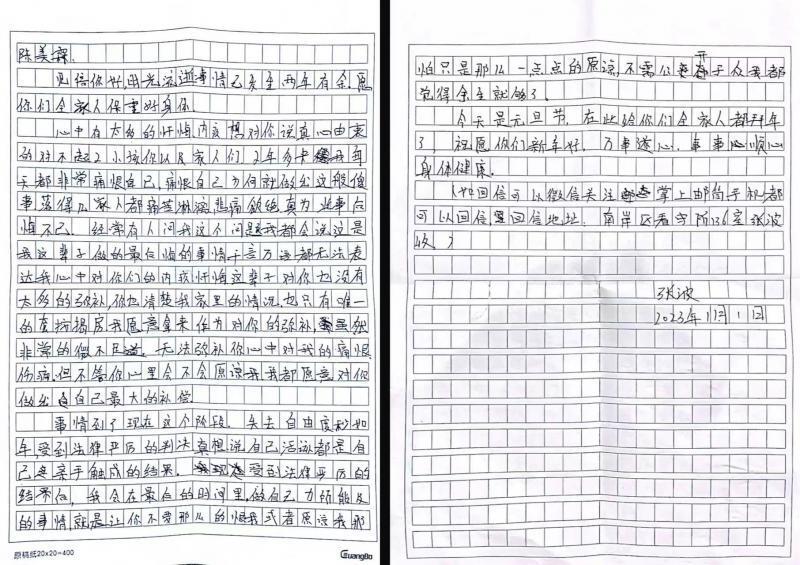 陈美霖.
见信你好,时光流逝事情已关至两年有余.愿
你们全家人保重好身体.
心中有太多的忏悔内疚想对你说真心由衷
的对不起2小孩你以及家人们,2年多来我每
天都非常痛恨自己,痛恨自己为何就做出这般傻
事落得几家人都痛苦淋漓悲痛欲绝真为此事后
悔不已. 经常有人问我这个问题我都会说这是
我这辈子做的最后悔的事情千言万语都无法表
达我心中对你们的内疚忏悔这辈子对你也没有
太多的弥补,你也清楚我家里的情况也只有唯一
的按揭房我愿意拿来作为对你的弥补,虽然
非常的微不足道. 无法弥补你心中对我的痛恨
伤痛.但不管你心里会不会愿谅我我都愿意对你
做出自己最大的补偿.
事情到了现在这个阶段. 失去自由度秒如
年受到法律严厉的判决真想说自己活该都是自
己亲手触成的结果. 受到法律严厉的
结果后, 我会在最后的时间里,做自己力所能及
的事情就是让你不要那么的恨我或者原谅我那
原稿纸20×20=400
GuangBo
怕只是那么一点点的原谅,不需公开于众我都
觉得余生就够了.
今天是元旦节,在此给你们全家人都拜年
了,祝愿你们新年好. 万事遂心. 事事顺心
身体健康.
(如回信可以微信关注掌上邮局手机都
可以回信回信地址: 南岸区看守所136室张波
收.)
张波
2023年1月1日